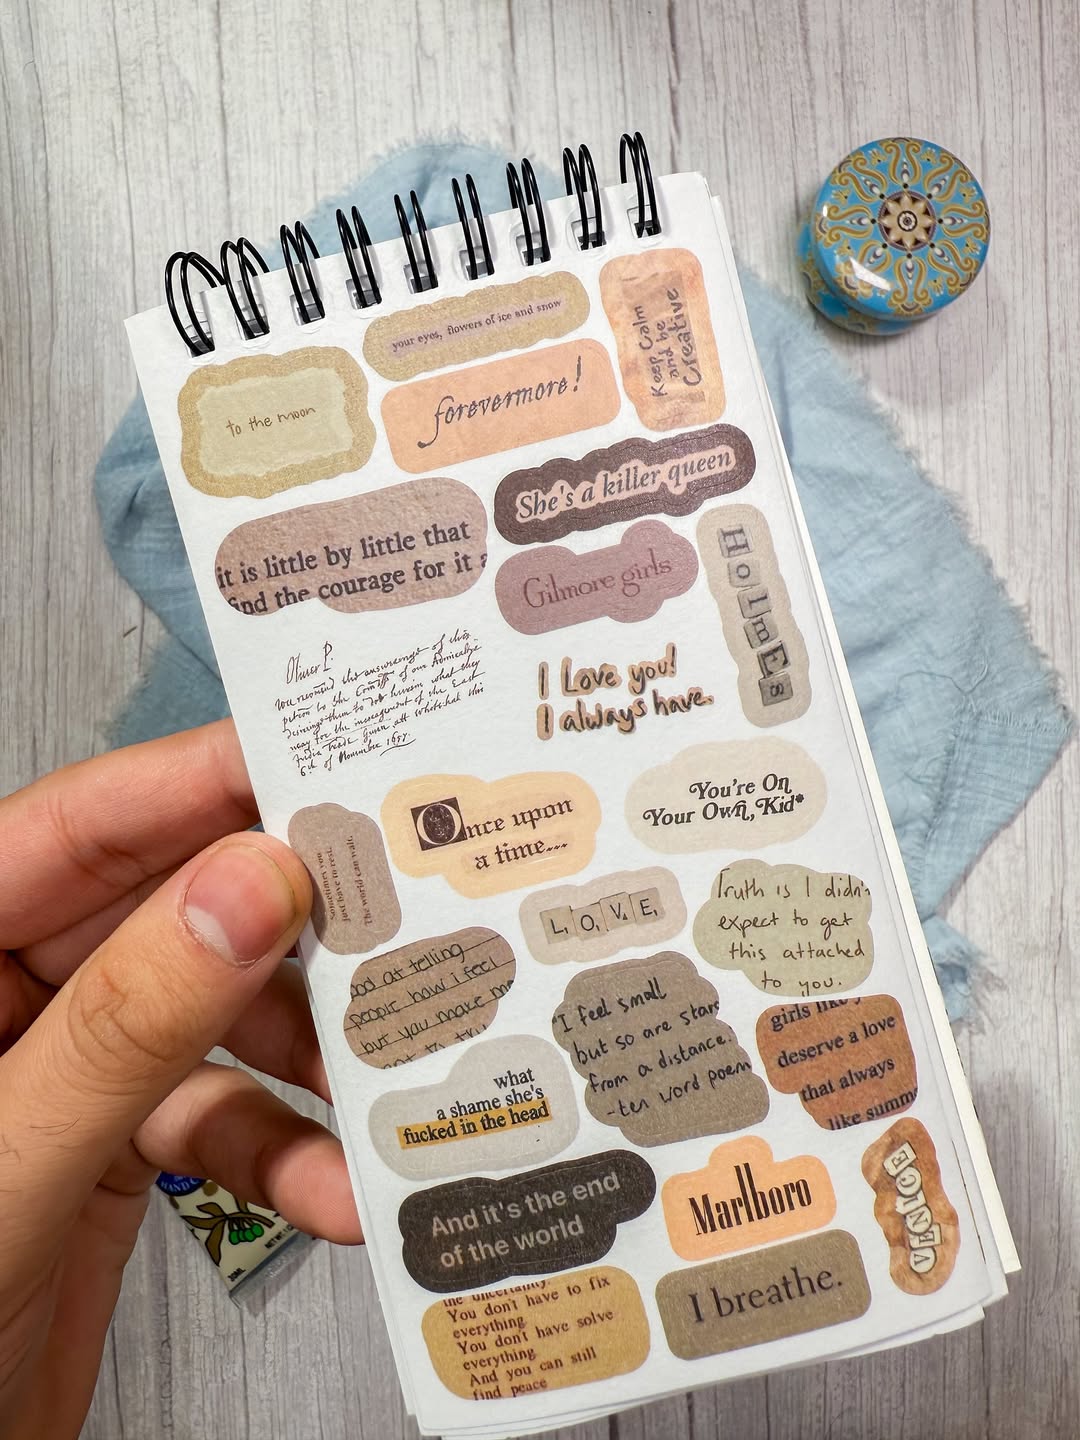 your eyes, flowers of ice and snow
Keep Calm
and be
Creative
to the moon
forevermore!
She's a killer queen
it is little by little that
find the courage for it a
Gilmore girls
HolmEs
Oliver P.
I Love you!
I always have.
6th of November 1657.
Once upon
a time...
You're On
Your Own, Kid*
Sometimes you
just have to rest.
The world can wait.
L O V E
Truth is I didn't
expect to get
this attached
to you.
ood at telling
people how i feel
but you make me
"I feel small
but so are stars
from a distance."
-ten word poem
girls like y
deserve a love
that always
like summe
what
a shame she's
fucked in the head
And it's the end
of the world
Marlboro
VENICE
I breathe.
the uncertainty.
You don't have to fix
everything
You don't have solve
everything
And you can still
find peace
HAND C
NET WT.